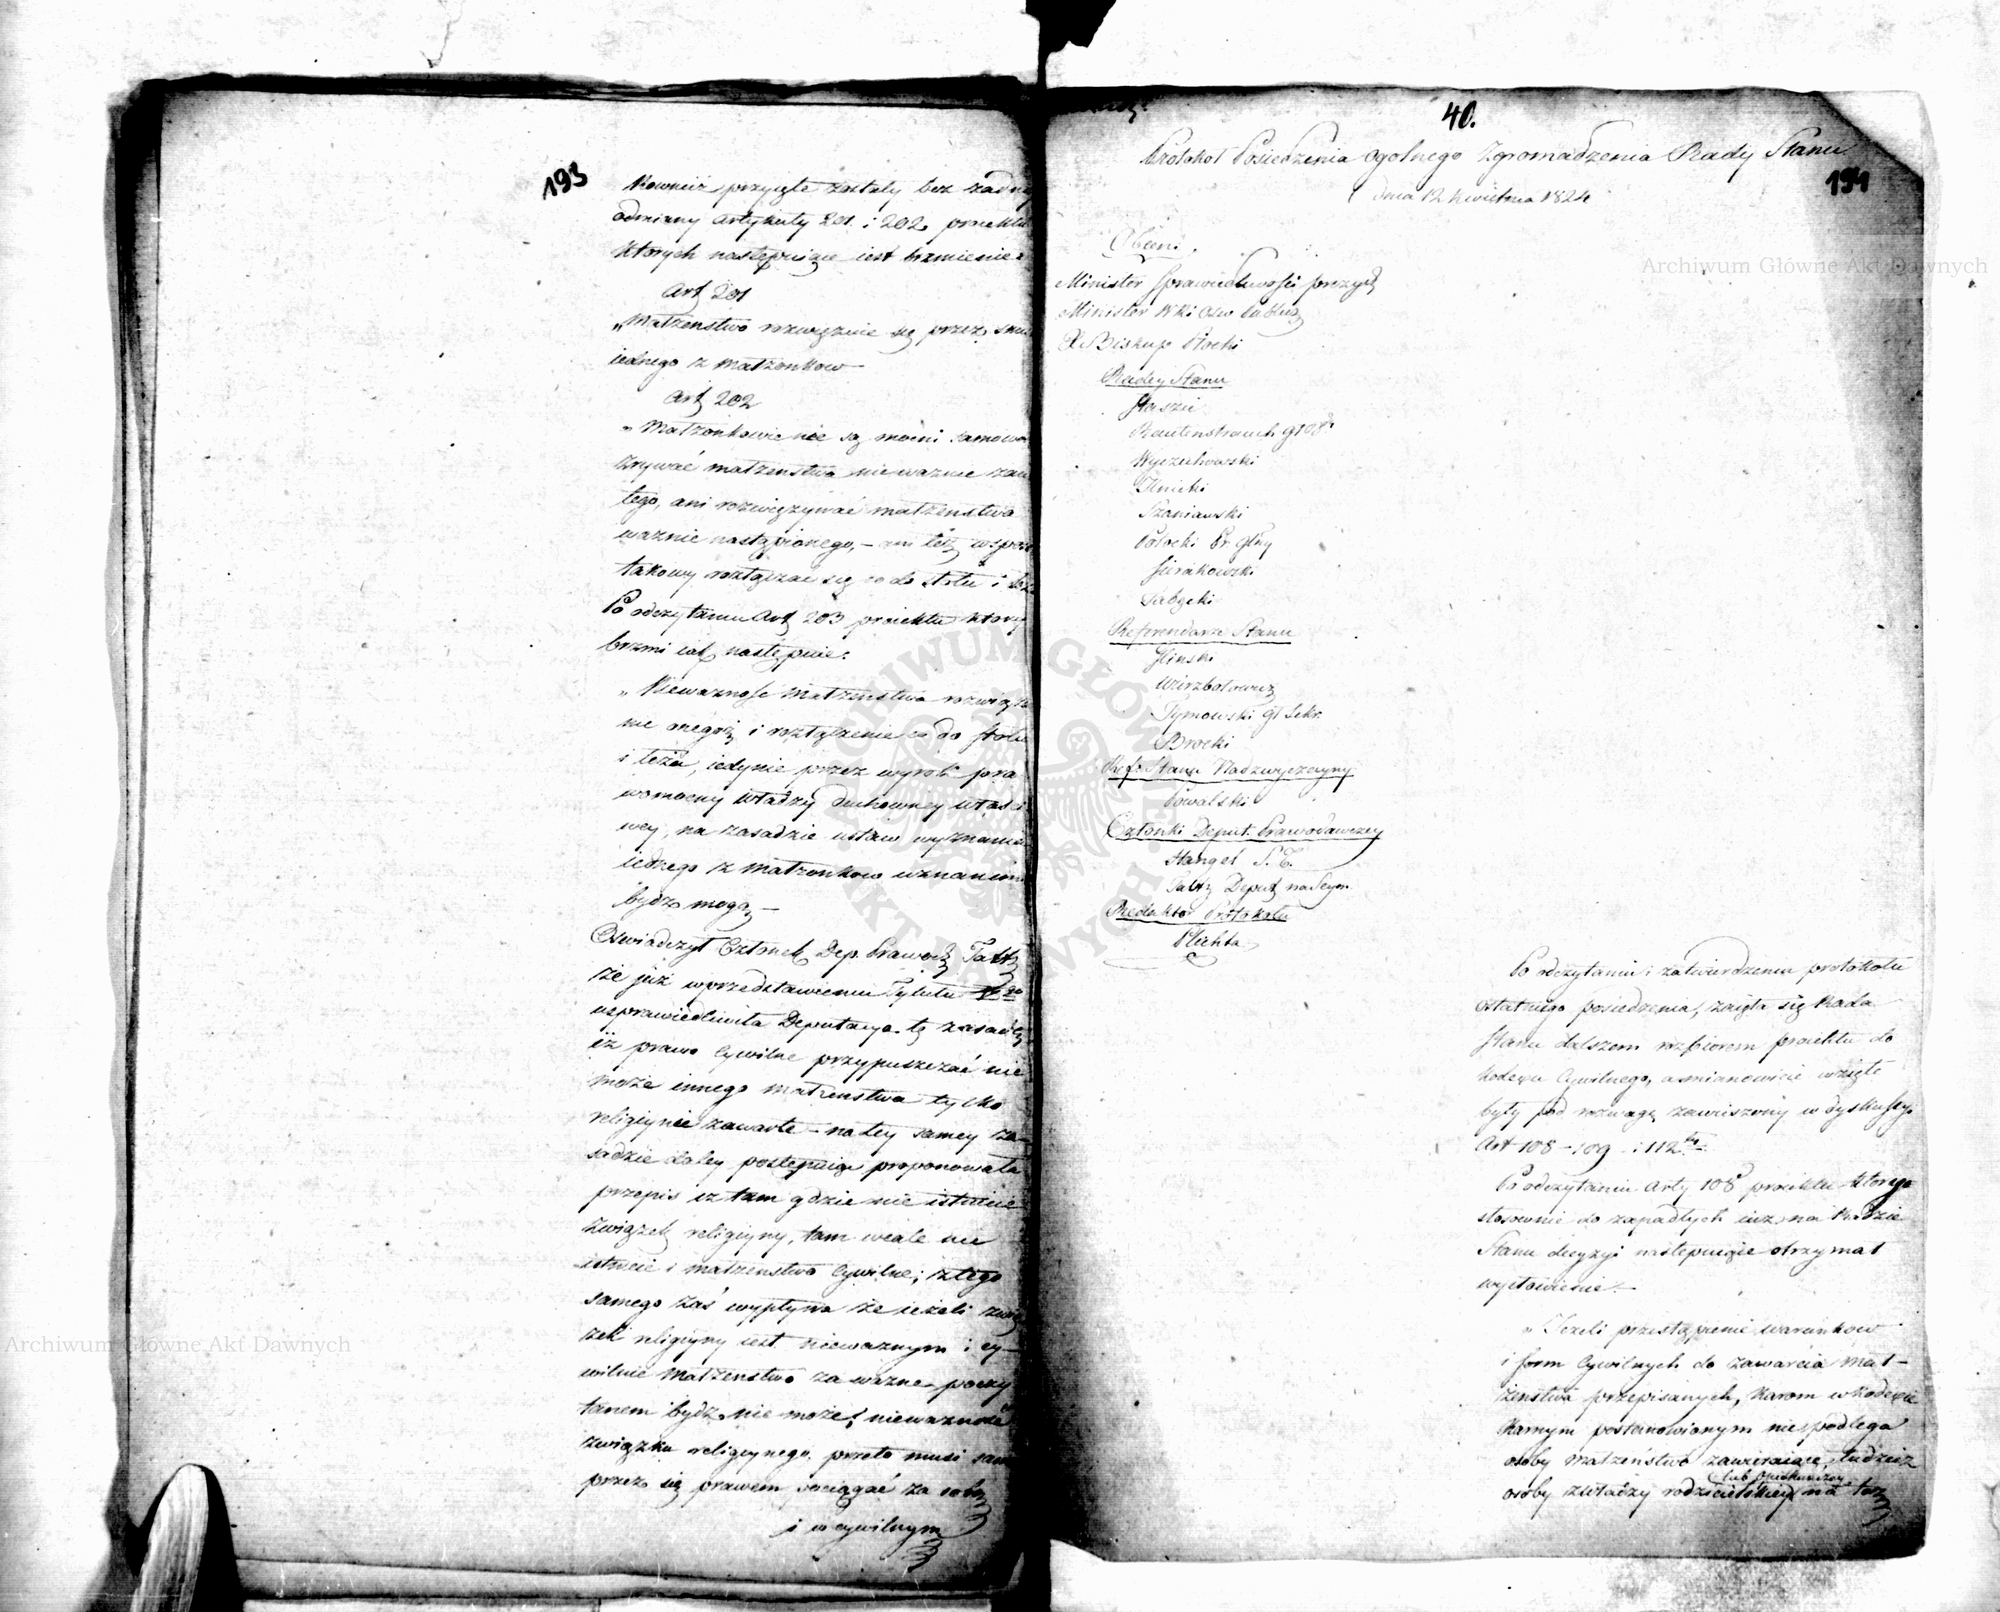 193
Rowniéz przyięte zostały bez żadney
odmiany artykuły 201. i 202. proiektu
ktorych następuiące iest brzmienie:
Art 201
„Małżenstwo rozwięzuie się przez
iednego z małżonkow —
Art 202
„Małżonkowie nie są mocni
zrywać małżenstwa nieważnie
tego, ani rozwięzywać małżenstwa
ważnie nastąpionego, — ani też
takowy rozłączać się co do stołu i
Po odczytaniu Art 203 proiektu ktory
brzmi iak następuie:
„Nieważność małżenstwa
nie onegoż i rozłączenie co do stołu
i łoża, iedynie przez wyrok pra-
womocny władzy duchowney właści
wey, na zasadzie ustaw wyznania
iednego z małżonkow uznanemi
bydz mogą —
Oświadczył Członek Dep. Prawod.
że już w przedstawieniu Tytułu
usprawiedliwiła Deputacya tę zasadę,
iż prawo Cywilne przypuszczać nie
może innego małżenstwa tylko
religiynie zawarte — na tey samey za-
sadzie daley postępuiąc proponowała
przepis iż tam gdzie nie istnieie
związek religiyny, tam wcale nie
istnieie i małżenstwo Cywilne; z tego
samego zaś wypływa że ieżeli zwią
zek religiyny iest nieważnym i cy-
wilnie małżenstwo za ważne poczy
tanem bydz nie może; nieważność
związku religiynego przeto musi sama
przez się prawem pociągać za sobą
i w cywilnym
40.
194
Protokoł Posiedzenia Ogolnego Zgromadzenia Rady Stanu
dnia 12 Kwietnia 1824
Obecni.
Minister Sprawiedliwości
Minister
X. Biskup Płocki
Radcy Stanu
Staszic
Rautenstrauch
Wyczechowski
Knicki
Szaniawski
Potocki
Sierakowski
Referendarze Stanu
Gliński
Wierzbołowicz
Tymowski
Brocki
Ref. Stanu Nadzwyczayny
Kowalski
Członki Deput. Prawodawczey
Hangel
Deput na Seym
Redaktor Protokołu
Plichta
Po odczytaniu i zatwierdzeniu protokołu
ostatniego posiedzenia, zaięła się Rada
Stanu dalszem rozbiorem proiektu do
Kodexu Cywilnego, a mianowicie wzięte
były pod rozwagę zawieszony w dyskussyi
Art 108 – 109 – i 112
Po odczytaniu Arty 108 proiektu ktory
stosownie do zapadłych iuż na Radzie
Stanu decyzyi następuiące otrzymał
wysłowienie. —
„Jeżeli przestąpienie warunkow
i form Cywilnych do zawarcia mał-
żenstwa przepisanych, karom w Kodexie
Karnym postanowionym nie podlega
osoby małżeństwo zawieraiące, tudzież
lub opiekuńczey
osoby władzy rodzicielskiey na toż
Archiwum Główne Akt Dawnych
Archiwum Główne Akt Dawnych
ARCHIWUM GŁÓWNE AKT DAWNYCH